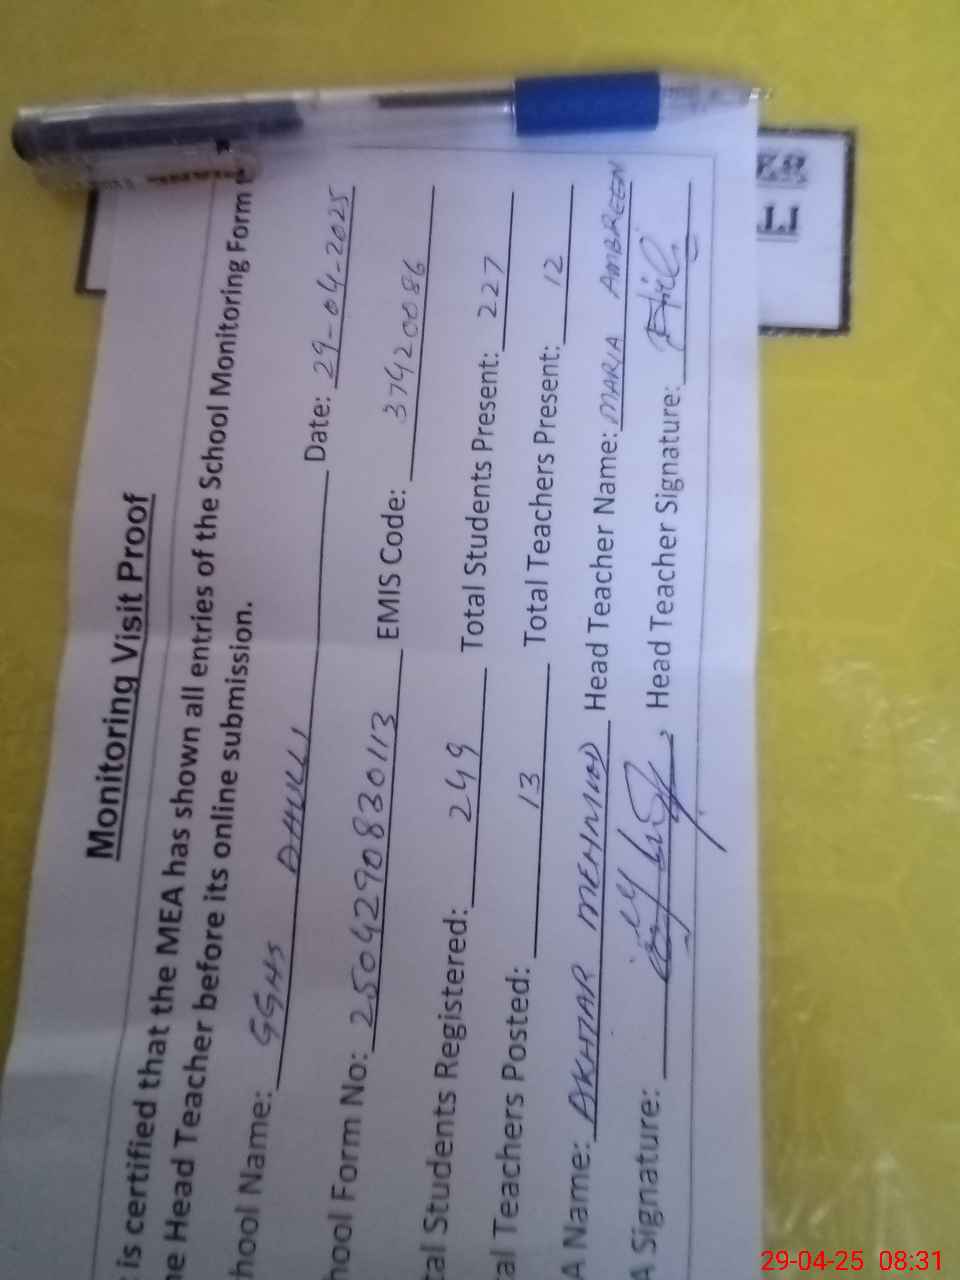 Monitoring Visit Proof
is certified that the MEA has shown all entries of the School Monitoring Form
he Head Teacher before its online submission.
hool Name: GGHS DHULLI Date: 29-04-2025
hool Form No: 2504290830113 EMIS Code: 37420086
tal Students Registered: 249 Total Students Present: 227
al Teachers Posted: 13 Total Teachers Present: 12
A Name: AKHTAR MEHMOOD Head Teacher Name: MARIA AMBREEN
A Signature: Head Teacher Signature:
29-04-25 08:31